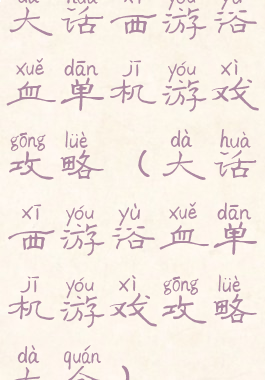 dà huà xī yóu yù
大话西游浴
xuě dān jī yóu xì
血单机游戏
gōng lüè dà huà
攻略(大话
xī yóu yù xuě dān
西游浴血单
jī yóu xì gōng lüè
机游戏攻略
dà quán
大全)